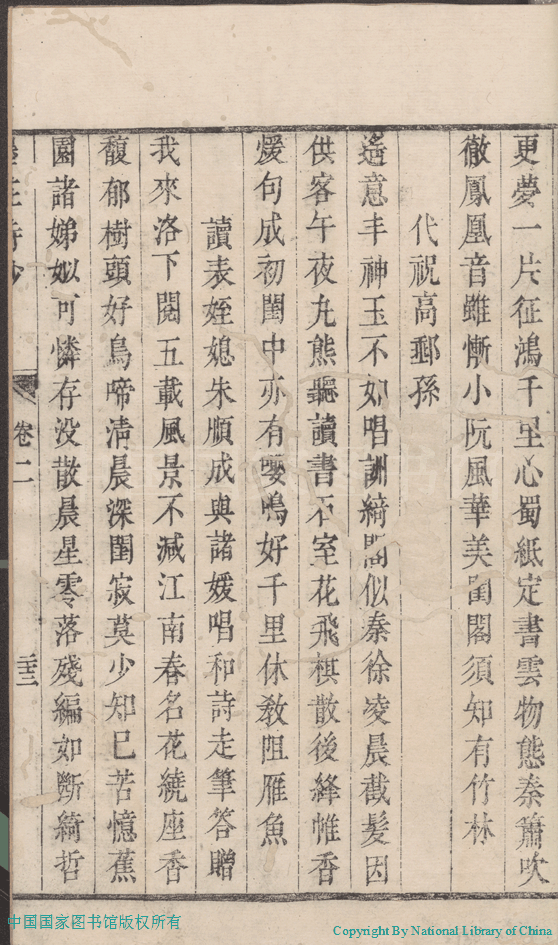 更夢一片征鴻千里心蜀紙定書雲物態秦簫吹
徹鳳凰音雖慚小阮風華美閨閣須知有竹林
代祝高郵孫
遙意丰神玉不如唱訓綺閣似秦徐凌晨截髮因
供客午夜丸熊聽讀書石室花飛棋散後絳帷香
煖句成初閨中亦有嚶鳴好千里休教阻雁魚
讀表姪媳朱順成與諸媛唱和詩走筆答贈
我來洛下閱五載風景不減江南春名花繞座香
馥郁樹頭好鳥啼清晨深閨寂莫少知已苦憶蕉
園諸娣姒可憐存没散晨星零落殘編如斷綺哲
卷二
二十三
中国国家图书馆版权所有
Copyright By National Library of China